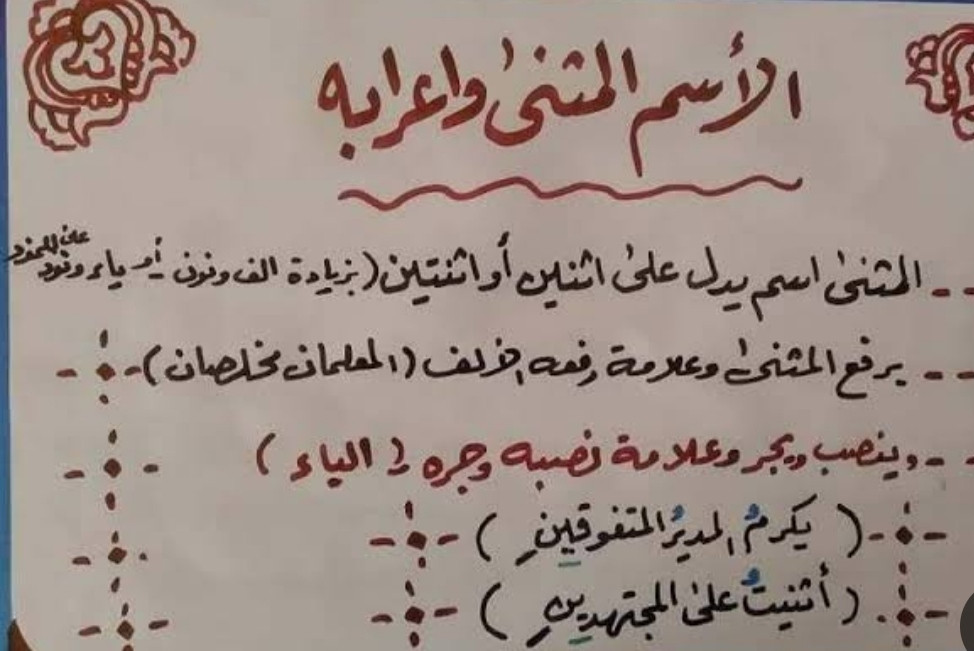 الأسم المثنىٰ واعرابه
- المثنىٰ اسم يدل علىٰ اثنين أو اثنتين (بزيادة الف ونون أو ياء ونون على المفرد
- يرفع المثنىٰ وعلامة رفعه الألف (المعلمان مخلصان)
- وينصب ويجر وعلامة نصبه وجره ( الياء )
( يكرمُ المديرُ المتفوقَينِ )
( أثنيتُ علىٰ المجتهدَينِ )